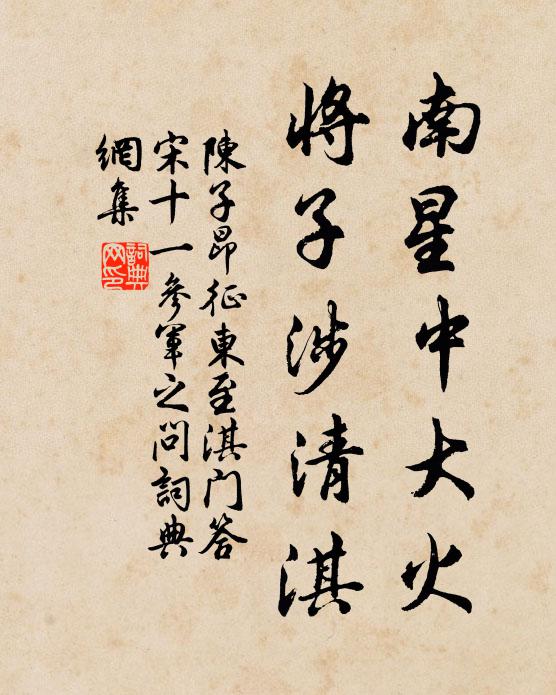 南星中大火
將子涉清淇
陳子昂征東至淇門答
宋十一參軍之問詞典
網集
詞典網印